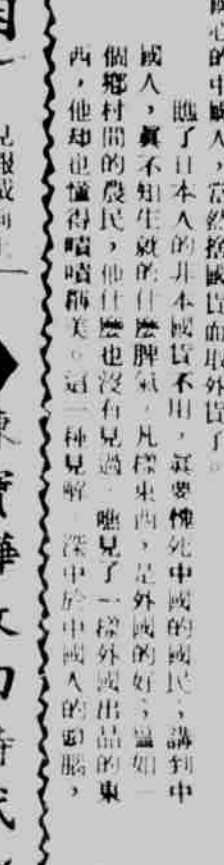 國心的中國人，當然捨國貨而取外貨了。
瞧了日本人的非本國貨不用，眞要愧死中國的國民；講到中
國人，眞不知生就的什麼脾氣，凡樣東西，是外國的好；譬如一
個鄉村間的農民，他什麼也沒有見過，瞧見了一樣外國出品的東
西，他却也懂得嘖嘖稱美。這一种見解，深中於中國人的頭腦，